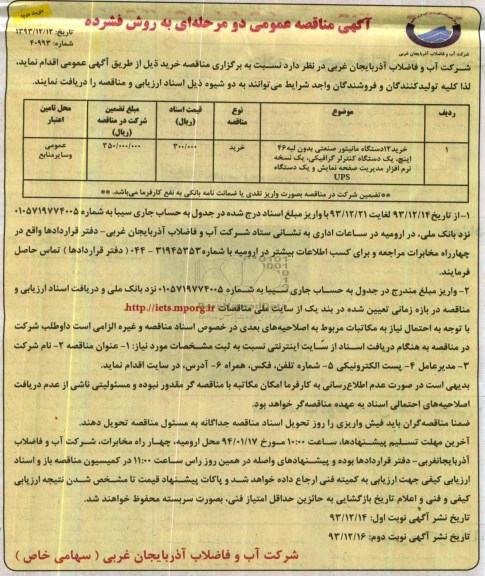 نوبت دوم
آگهی مناقصه عمومی دو مرحله‌ای به روش فشرده
تاریخ: ۱۳۹۳/۱۲/۱۲
شماره: ۴۰۹۹۳
شرکت آب و فاضلاب آذربایجان غربی
شرکت آب و فاضلاب آذربایجان غربی در نظر دارد نسبت به برگزاری مناقصه خرید ذیل از طریق آگهی عمومی اقدام نماید،
لذا کلیه تولیدکنندگان و فروشندگان واجد شرایط می‌توانند به دو شیوه ذیل اسناد ارزیابی و مناقصه را دریافت نمایند.
ردیف موضوع نوع مناقصه قیمت اسناد (ریال) مبلغ تضمین شرکت در مناقصه (ریال) محل تامین اعتبار
۱ خرید۱۲دستگاه مانیتور صنعتی بدون لبه۴۶ اینچ، یک دستگاه کنترلر گرافیکی، یک نسخه نرم افزار مدیریت صفحه نمایش و یک دستگاه UPS خرید ۳۰۰/۰۰۰ ۳۵۰/۰۰۰/۰۰۰ عمومی وسایرمنابع
**تضمین شرکت در مناقصه بصورت واریز نقدی یا ضمانت نامه بانکی به نفع کارفرما می‌باشد.**
۱- از تاریخ۹۳/۱۲/۱۴ لغایت ۹۳/۱۲/۲۱ با واریز مبلغ اسناد درج شده در جدول به حساب جاری سیبا به شماره ۰۱۰۵۷۱۹۷۷۴۰۰۵
نزد بانک ملی، در ارومیه در ساعات اداری به نشانی ستاد شرکت آب و فاضلاب آذربایجان غربی- دفتر قراردادها واقع در
چهارراه مخابرات مراجعه و برای کسب اطلاعات بیشتر در ارومیه با شماره۳۱۹۴۵۳۵۳ - ۰۴۴ ( دفتر قراردادها ) تماس حاصل
فرمایند.
۲- واریز مبلغ مندرج در جدول به حساب جاری سیبا به شماره ۰۱۰۵۷۱۹۷۷۴۰۰۵ نزد بانک ملی و دریافت اسناد ارزیابی و
مناقصه در بازه زمانی تعیین شده در بند یک از سایت ملی مناقصات http://iets.mporg.ir
با توجه به احتمال نیاز به مکاتبات مربوط به اصلاحیه‌های بعدی در خصوص اسناد مناقصه و غیره الزامی است داوطلب شرکت
در مناقصه به هنگام دریافت اسناد از سایت اینترنتی نسبت به ثبت مشخصات مورد نیاز: ۱- عنوان مناقصه ۲- نام شرکت
۳- مدیرعامل ۴- پست الکترونیکی ۵- شماره تلفن، فکس، همراه ۶- آدرس، در سایت اقدام نماید.
بدیهی است در صورت عدم اطلاع‌رسانی به کارفرما امکان مکاتبه با مناقصه گر مقدور نبوده و مسئولیتی ناشی از عدم دریافت
اصلاحیه‌های احتمالی اسناد به عهده مناقصه‌گر خواهد بود.
ضمنا مناقصه‌گران باید فیش واریزی را روز تحویل اسناد مناقصه جداگانه به مسئول مناقصه تحویل دهند.
آخرین مهلت تسلیم پیشنهادها، ساعت ۱۰:۰۰ مورخ ۹۴/۰۱/۱۷ محل ارومیه، چهار راه مخابرات، شرکت آب و فاضلاب
آذربایجانغربی- دفتر قراردادها بوده و پیشنهادهای واصله در همین روز راس ساعت ۱۱:۰۰ در کمیسیون مناقصه باز و اسناد
ارزیابی کیفی جهت ارزیابی به کمیته فنی ارجاع داده خواهد شد و پاکات پیشنهاد قیمت تا مشخص شدن نتیجه ارزیابی
کیفی و فنی و اعلام تاریخ بازگشایی به حائزین حداقل امتیاز فنی، بصورت سربسته محفوظ خواهند شد.
تاریخ نشر آگهی نوبت اول: ۹۳/۱۲/۱۴
تاریخ نشر آگهی نوبت دوم: ۹۳/۱۲/۱۶
شرکت آب و فاضلاب آذربایجان غربی ( سهامی خاص )